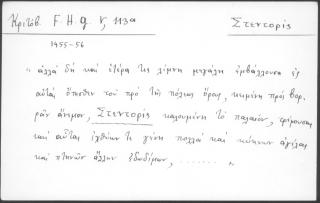 Κριτόβ. F H G V, 113α Στεντορίς
1455-56
"ἀλλὰ δὴ καὶ ἑτέρα τις λίμνη μεγάλη ἐμβάλλουσα ἐς
αὐτὰς ὄπισθεν τοῦ πρὸ τῆς πόλεως ὄρους, κειμένη πρὸς βορ-
ρᾶν ἄνεμον, Στεντορὶς καλουμένη τὸ παλαιόν, τρέφουσα
καὶ αὕτη ἰχθύων τε γένη πολλὰ καὶ κύκνων ἀγέλας
καὶ πτηνῶν ἄλλων ἐδωδίμων, ........ "